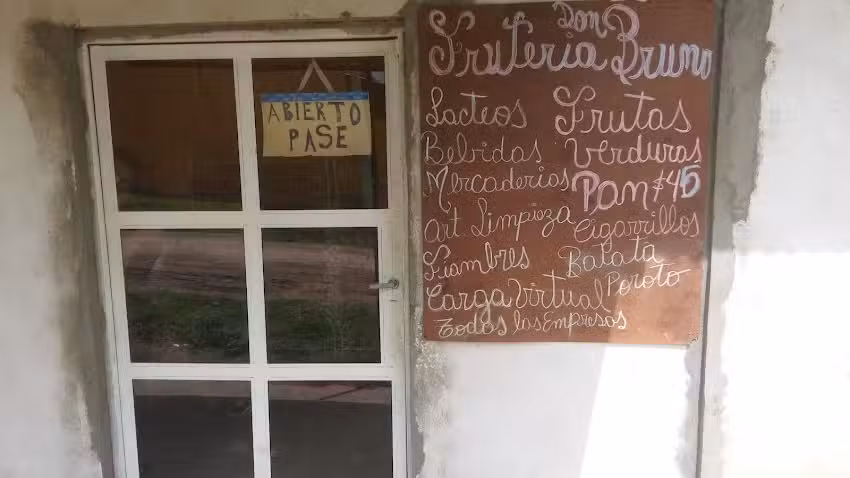 ABIERTO
PASE
Don
Fruteria Bruno
Lacteos Frutas
Bebidas Verduras
Mercaderias Pan $45
Art Limpieza Cigarrillos
Fiambres Batata
Carga Virtual Poroto
Todas las Empresas